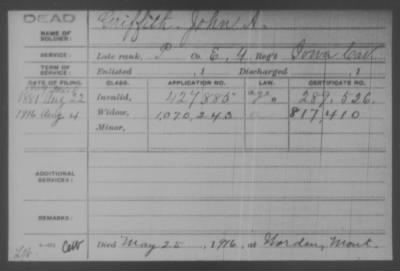 DEAD
NAME OF SOLDIER: Griffith, John A.
SERVICE: Late rank, P Co. E, 4 Reg't Iowa Cav.
TERM OF SERVICE: Enlisted , 1 Discharged , 1
DATE OF FILING. CLASS. APPLICATION NO. LAW. CERTIFICATE NO.
1881 Aug 22 Invalid, 427885 age 289,526.
1916 Aug 4 Widow, 1,070,243 817,410
Minor,
ADDITIONAL SERVICES:
REMARKS:
Died May 25, 1916, at Gorden, Mont.